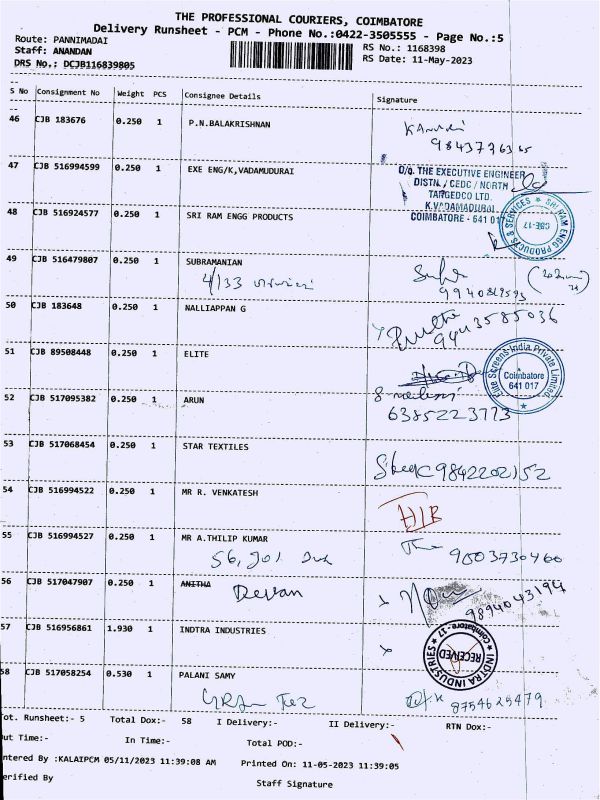 THE PROFESSIONAL COURIERS, COIMBATORE
Delivery Runsheet - PCM - Phone No.:0422-3505555 - Page No.:5
Route: PANNIMADAI
RS No.: 1168398
Staff: ANANDAN
RS Date: 11-May-2023
DRS No.: DCJB116839805
S No Consignment No Weight PCS Consignee Details Signature
46 CJB 183676 0.250 1 P.N.BALAKRISHNAN
47 CJB 516994599 0.250 1 EXE ENG/K,VADAMUDURAI
O/o. THE EXECUTIVE ENGINEER
DISTN./ CEDC / NORTH
TANGEDCO LTD.
K.VADAMADURAI
COIMBATORE - 641 017
48 CJB 516924577 0.250 1 SRI RAM ENGG PRODUCTS
SRI RAM ENGG PRODUCTS & SERVICES
CBE-17
49 CJB 516479807 0.250 1 SUBRAMANIAN
4/133
50 CJB 183648 0.250 1 NALLIAPPAN G
9443585036
51 CJB 89508448 0.250 1 ELITE
Elite Screens India Private Limited
Coimbatore
641 017
52 CJB 517095382 0.250 1 ARUN
6385223773
53 CJB 517068454 0.250 1 STAR TEXTILES
9842202152
54 CJB 516994522 0.250 1 MR R. VENKATESH
55 CJB 516994527 0.250 1 MR A.THILIP KUMAR
9003730460
56 CJB 517047907 0.250 1 ANITHA Devan
9894043194
57 CJB 516956861 1.930 1 INDTRA INDUSTRIES
INDTRA INDUSTRIES
RECEIVED
Coimbatore - 17
58 CJB 517058254 0.530 1 PALANI SAMY
8754625479
ot. Runsheet:- 5 Total Dox:- 58 I Delivery:- II Delivery:- RTN Dox:-
ut Time:- In Time:- Total POD:-
ntered By :KALAIPCM 05/11/2023 11:39:08 AM Printed On: 11-05-2023 11:39:05
erified By Staff Signature